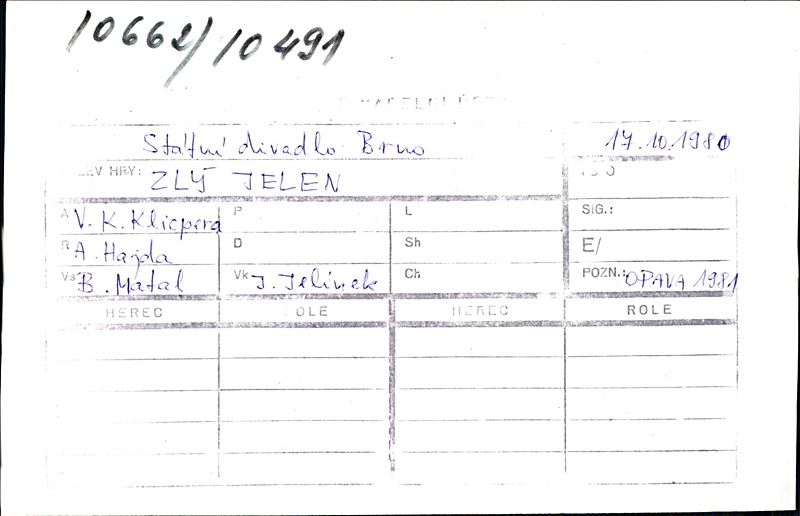 10662/10491
Státní divadlo Brno 17.10.1980
HRY: ZLÝ JELEN
A V. K. Klicpera P L SIG.:
R A. Hajda D Sh E/
Vs B. Matal Vk J. Jelínek Ch POZN.: OPAVA 1981
HEREC ROLE HEREC ROLE